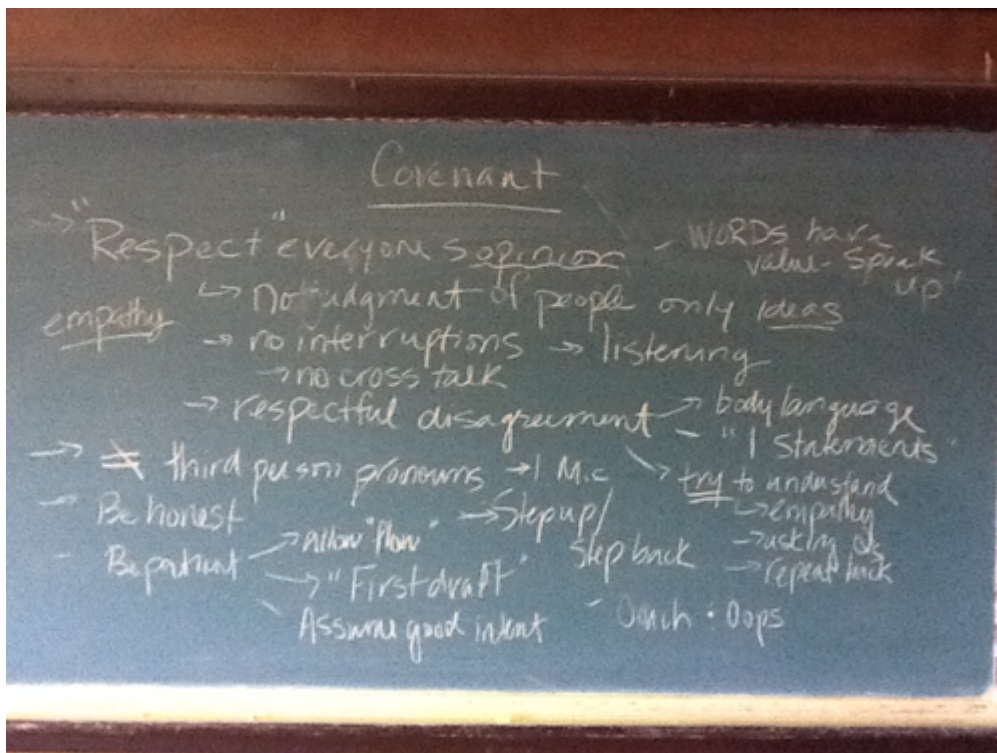 Covenant
→ "Respect" everyones opinion - WORDs have
value - Speak
up!
↳ No judgment of people only ideas
empathy
→ no interruptions → listening
→ no cross talk
→ respectful disagreement → body language
- "I statements"
→ ≠ third person pronouns → 1 Mic ↘ try to understand
↳ empathy
- Be honest → Step up/
Step back → asking Qs
→ repeat back
- Be patient → allow "flow"
→ "First draft"
Assume good intent - Ouch : Oops